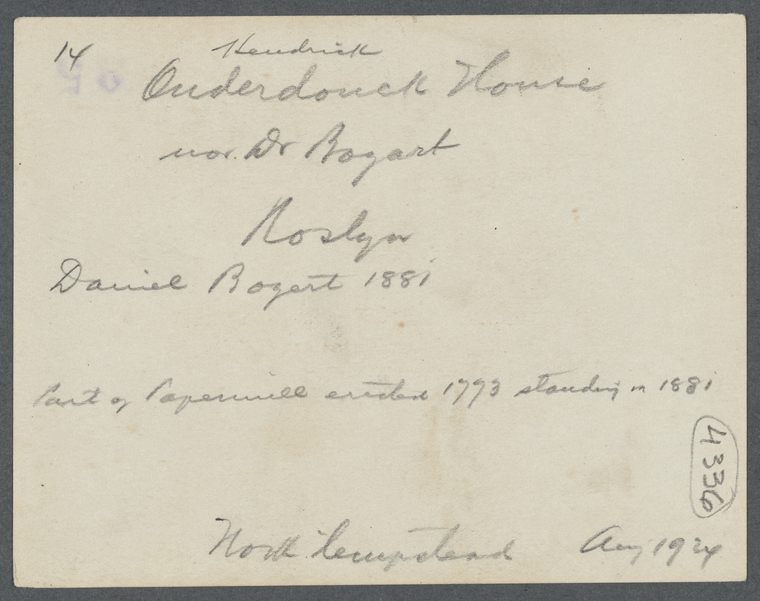 14
Hendrick
Onderdonck House
now Dr Bogart
Roslyn
Daniel Bogert 1881
Part of Papermill erected 1793 standing in 1881
4336
North Hempstead Aug 1924